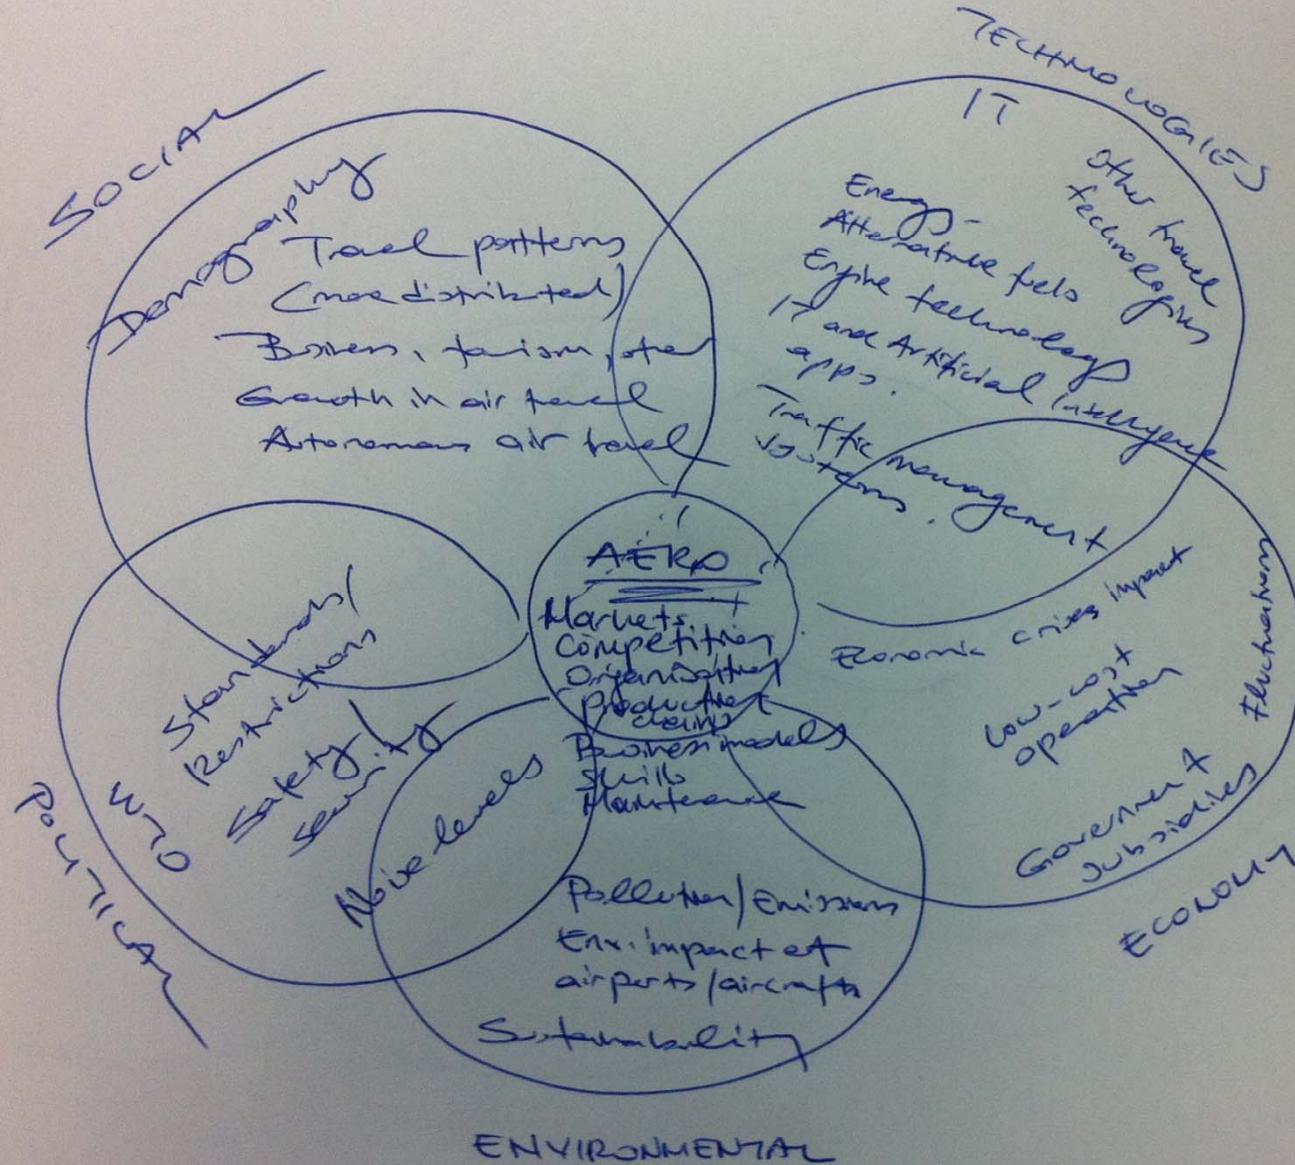 SOCIAL
Demography
Travel patterns
(more distributed)
Business, tourism, other
Growth in air travel
Autonomous air travel
TECHNOLOGIES
IT
Other travel
technologies
Energy -
Alternative fuels
Engine technology
IT and Artificial Intelligence
apps.
Traffic management
systems.
AERO
Markets
Competition
Organisation
Production
chains
Business models
Skills
Maintenance
Economic crises impact
Low-cost
operation
Fluctuations
Government
subsidies
ECONOMY
Standards/
Restrictions
Safety/
security
WTO
POLITICAL
Noise levels
Pollution/Emissions
Env. impact of
airports/aircrafts
Sustainability
ENVIRONMENTAL